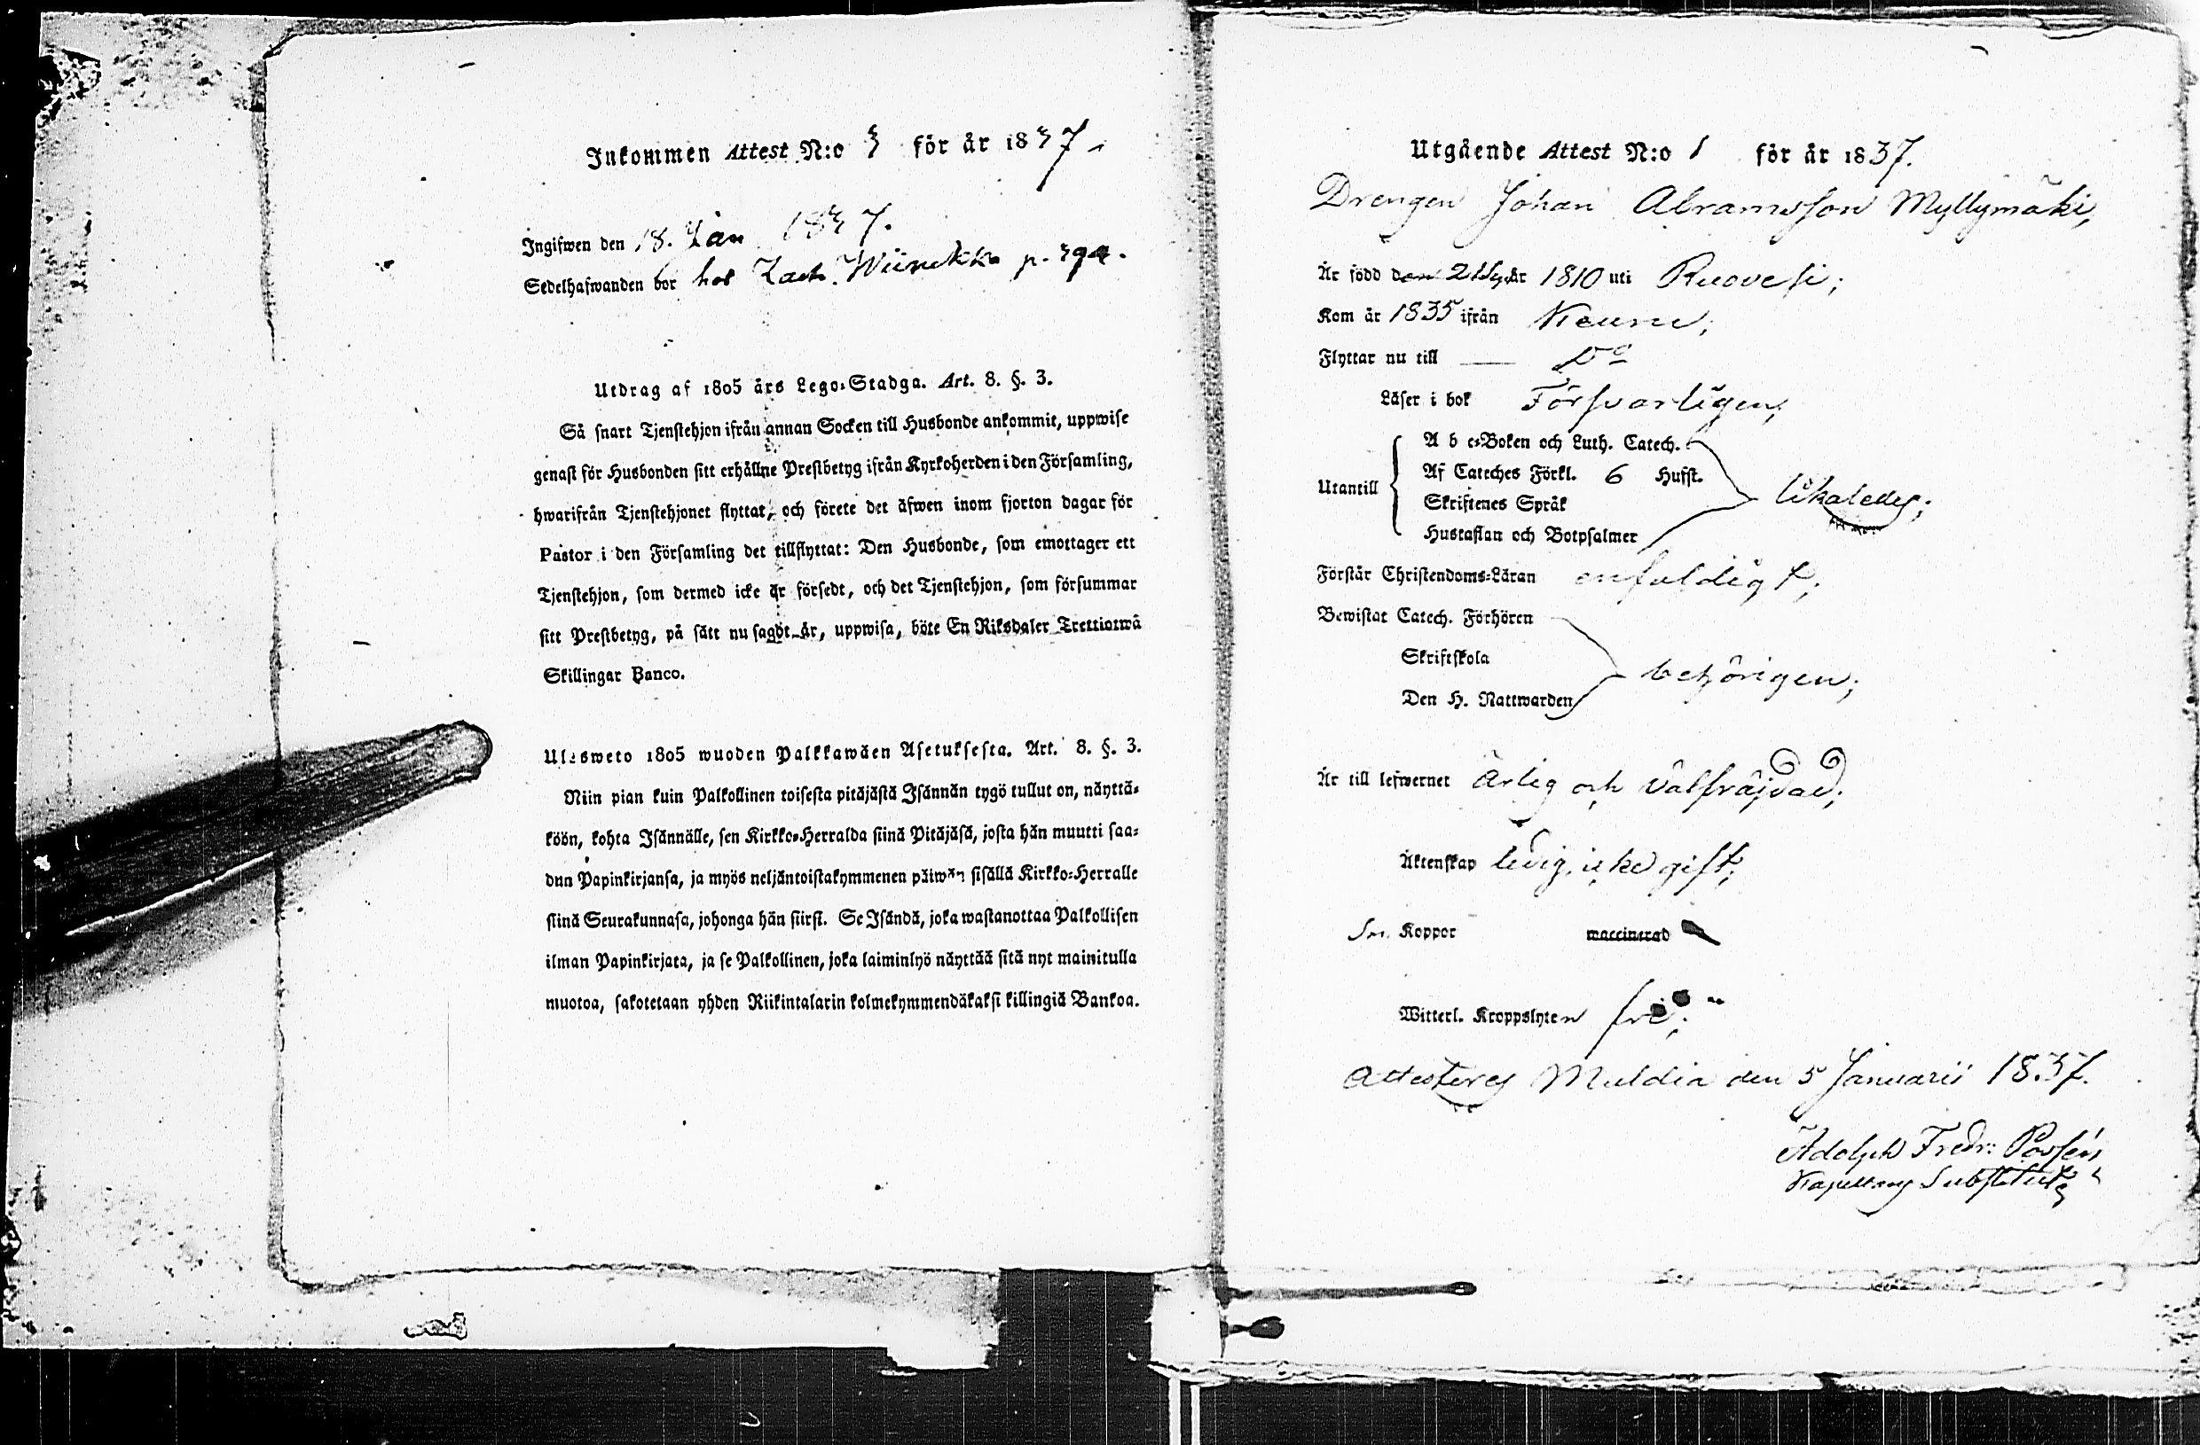 Inkommen Attest N:o 3 för år 1837.
Ingifwen den 18. Jan 1837.
Sedelhafwanden bor hos Zach. p.
Utdrag af 1805 års Lego-Stadga. Art. 8. §. 3.
Så snart Tjenstehjon ifrån annan Socken till Husbonde ankommit, uppwise
genast för Husbonden sitt erhållne Prestbetyg ifrån Kyrkoherden i den Församling,
hwarifrån Tjenstehjonet flyttat, och förete det äfwen inom fjorton dagar för
Pastor i den Församling det tillflyttat: Den Husbonde, som emottager ett
Tjenstehjon, som dermed icke är försedt, och det Tjenstehjon, som försummar
sitt Prestbetyg, på sätt nu sagdt är, uppwisa, böte En Riksdaler Trettiotwå
Skillingar Banco.
Ulosweto 1805 wuoden Palkkawäen Asetuksesta. Art. 8. §. 3.
Niin pian kuin Palkollinen toisesta pitäjästä Isännän tygö tullut on, näyttä-
köön, kohta Isännälle, sen Kirkko-Herralda siinä Pitäjäsä, josta hän muutti saa-
dun Papinkirjansa, ja myös neljäntoistakymmenen päiwän sisällä Kirkko-Herralle
siinä Seurakunnasa, johonga hän siirsi. Se Isändä, joka wastanottaa Palkollisen
ilman Papinkirjata, ja se Palkollinen, joka laiminlyö näyttää sitä nyt mainitulla
muotoa, sakotetaan yhden Riikintalarin kolmekymmendäkaksi killingiä Bankoa.
Utgående Attest N:o 1 för år 1837.
Drengen Johan Abramsson Myllymäki,
Är född den år 1810 uti Ruovesi;
Kom år 1835 ifrån Keuru;
Flyttar nu till — Do
Läser i bok Försvarligen;
A b c-Boken och Luth. Catech.
Af Cateches Förkl. 6 Hufst.
Utantill
Skriftenes Språk likaledes;
Hustaflan och Botpsalmer
Förstår Christendoms-Läran enfaldigt;
Bewistat Catech. Förhören
Skriftskola behörigen;
Den H. Nattwarden
Är till lefwernet ärlig och välfräjdad;
Äktenskap ledig, icke gift;
Koppor waccinerad
Witterl. Kroppslyten fri;
Attesteras Muldia den 5 Januarii 1837.
Adolph Fredr: Possén
Kapellans Substitut